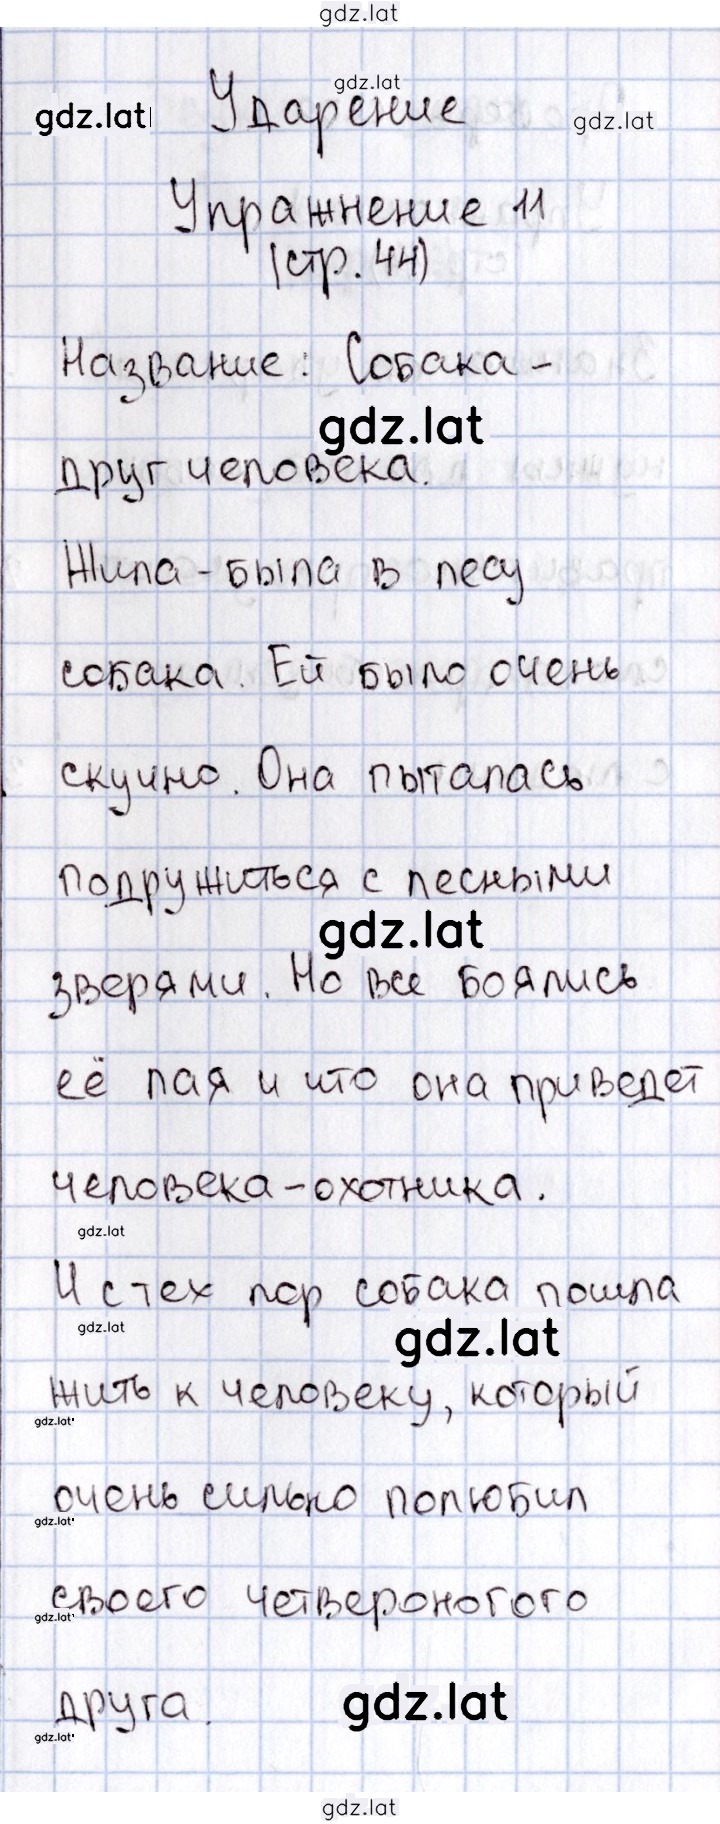 gdz.lat
gdz.lat
gdz.lat Ударение gdz.lat
Упражнение 11
(стр. 44)
Название: Собака -
gdz.lat
друг человека.
Жила-была в лесу
собака. Ей было очень
скучно. Она пыталась
подружиться с лесными
gdz.lat
зверями. Но все боялись
её лая и что она приведет
человека-охотника.
gdz.lat
И с тех пор собака пошла
gdz.lat
gdz.lat
жить к человеку, который
gdz.lat
очень сильно полюбил
gdz.lat
своего четвероногого
gdz.lat
друга. gdz.lat
gdz.lat
gdz.lat